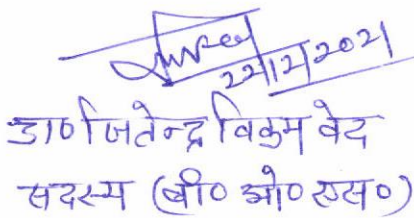 22/12/2021
डा० जितेन्द्र विक्रम वेद
सदस्य (बी० ओ० एस०)